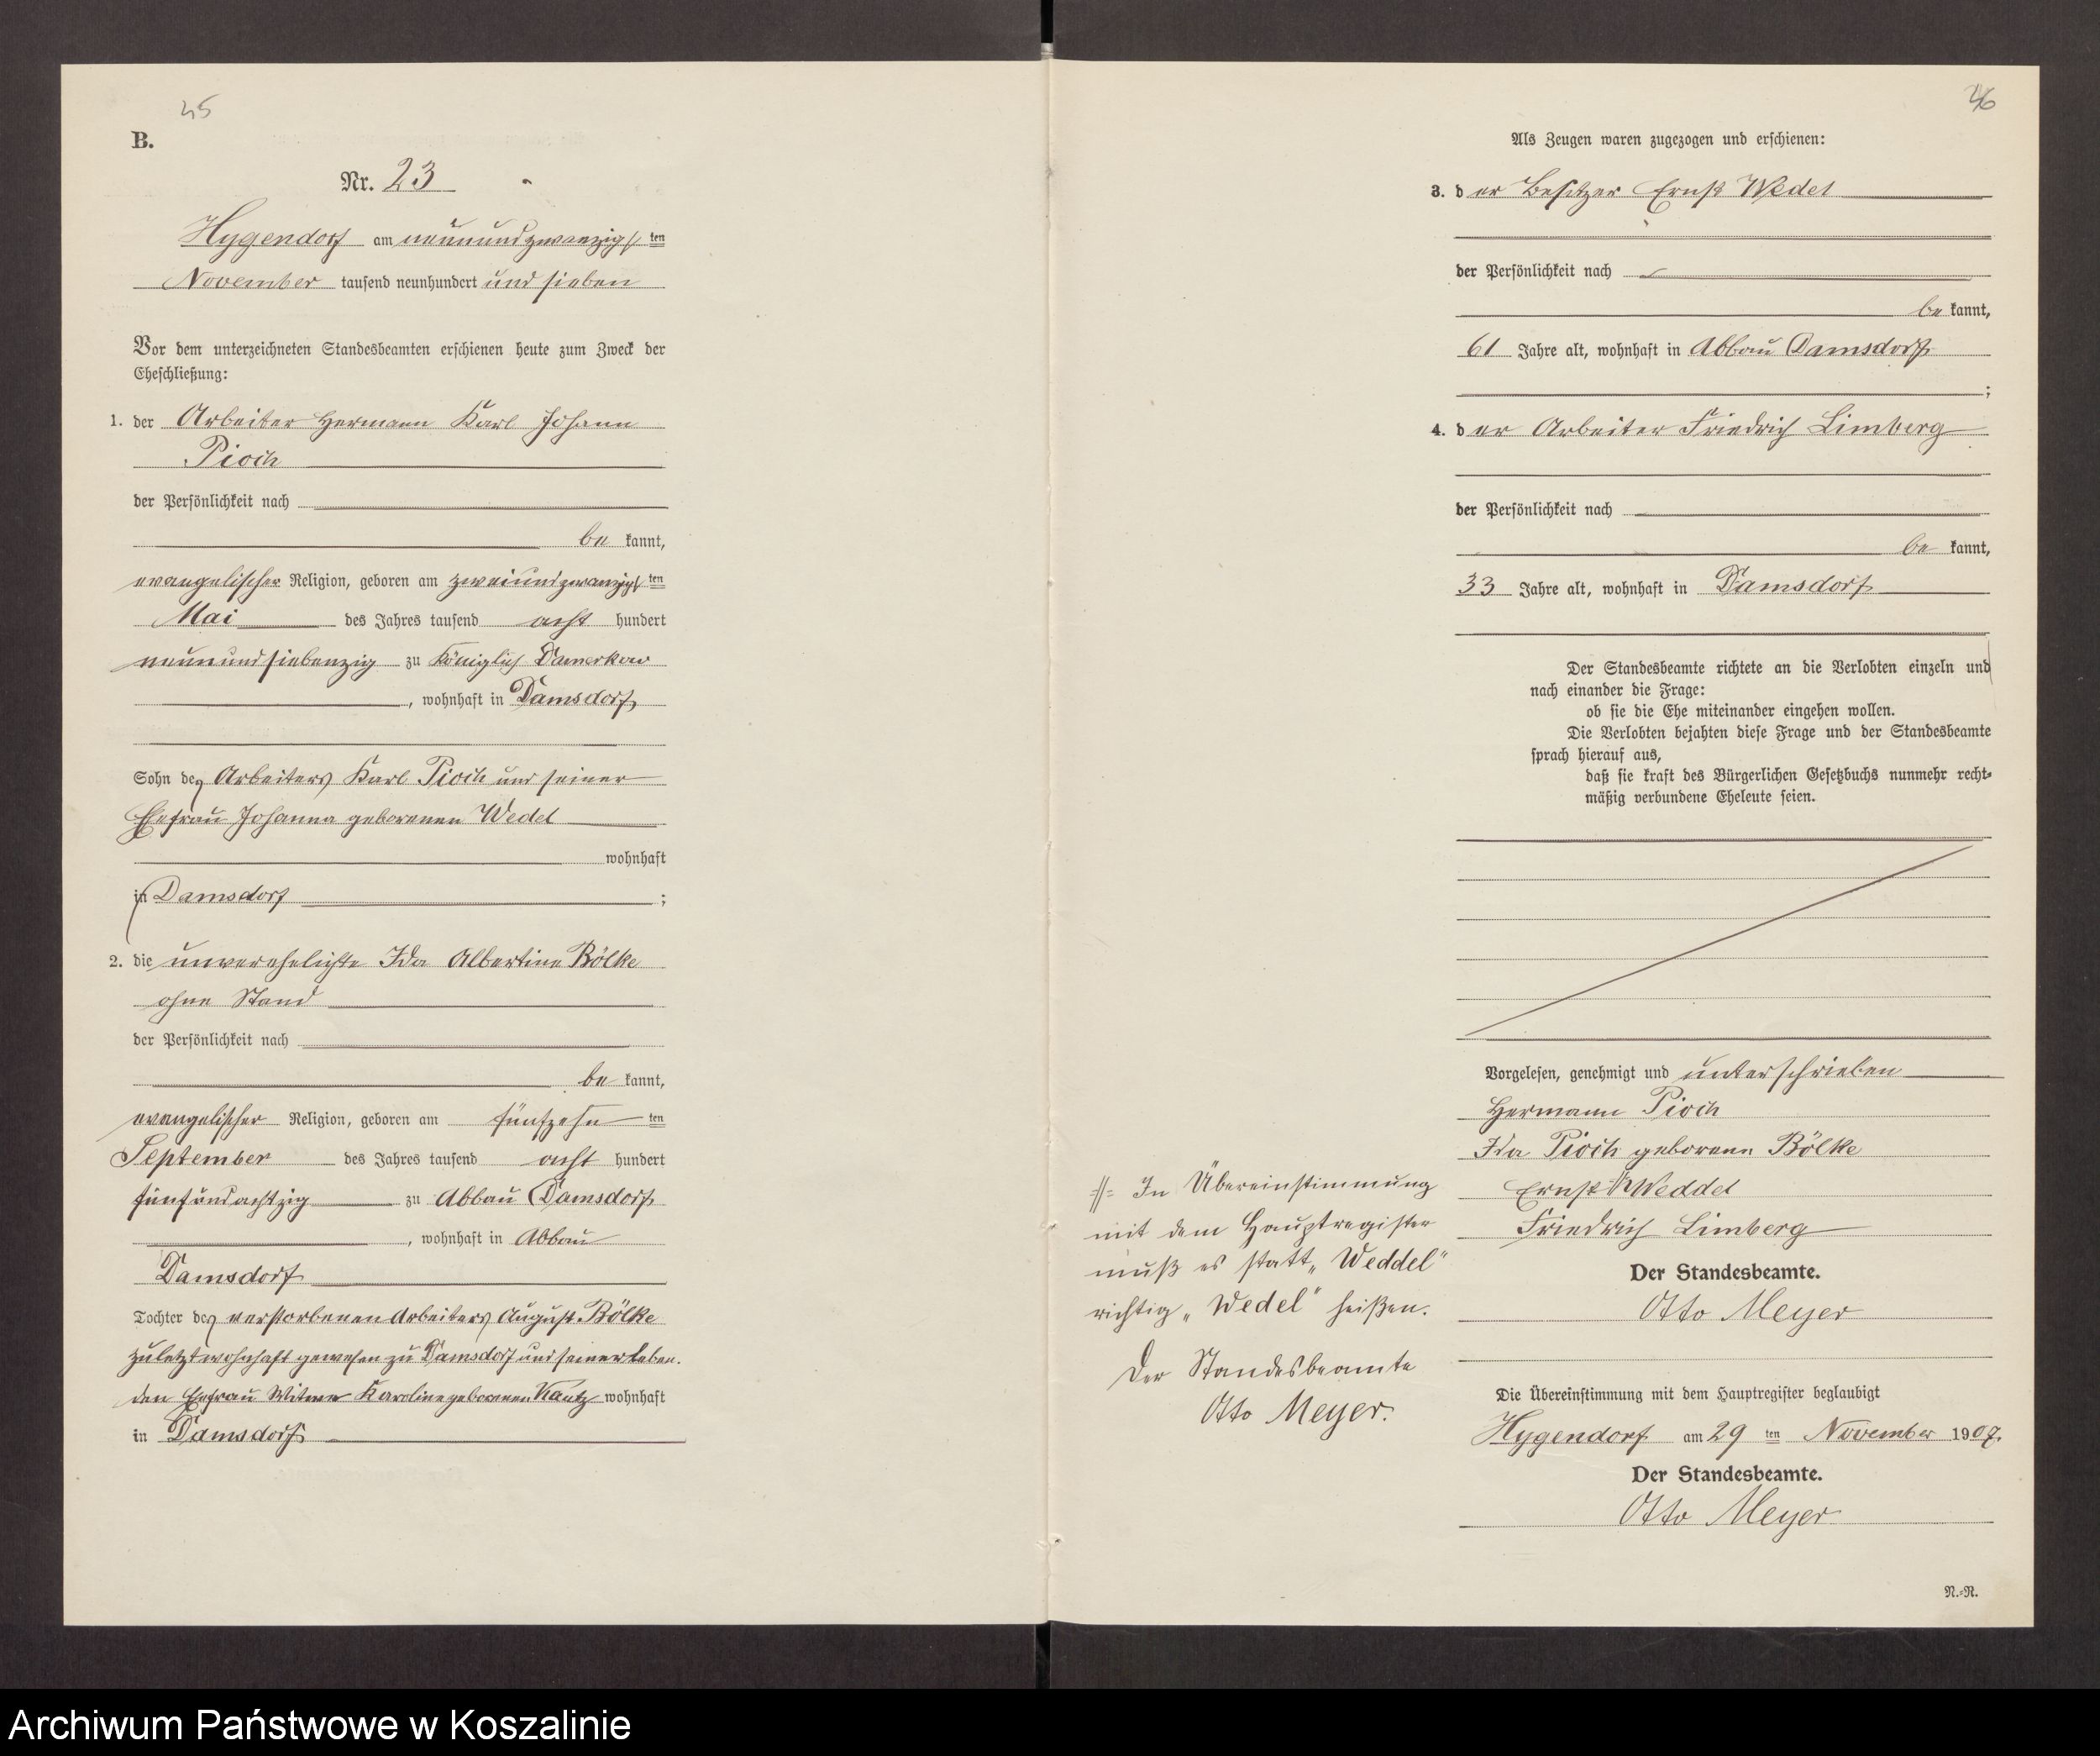 45
B.
Nr. 23
Hygendorf am neunundzwanzigsten
November tausend neunhundert und sieben
Vor dem unterzeichneten Standesbeamten erschienen heute zum Zweck der
Eheschließung:
1. der Arbeiter Hermann Karl Johann
Pioch
der Persönlichkeit nach
be kannt,
evangelischer Religion, geboren am zweiundzwanzigsten
Mai des Jahres tausend acht hundert
neunundsiebenzig zu Königlich Damerkow
, wohnhaft in Damsdorf
Sohn des Arbeiters Karl Pioch und seiner
Ehefrau Johanna geborenen Wedel
wohnhaft
in Damsdorf ;
2. die unverehelichte Ida Albertine Bölke
ohne Stand
der Persönlichkeit nach
be kannt,
evangelischer Religion, geboren am fünfzehn ten
September des Jahres tausend acht hundert
fünfundachtzig zu Abbau Damsdorf
, wohnhaft in Abbau
Damsdorf
Tochter des verstorbenen Arbeiters August Bölke
zuletzt wohnhaft gewesen zu Damsdorf und seiner leben-
den Ehefrau Witwe Karoline geborenen wohnhaft
in Damsdorf
46
Als Zeugen waren zugezogen und erschienen:
3. der Besitzer Ernst Wedel
der Persönlichkeit nach
be kannt,
61 Jahre alt, wohnhaft in Abbau Damsdorf
;
4. der Arbeiter Friedrich Limberg
der Persönlichkeit nach
be kannt,
33 Jahre alt, wohnhaft in Damsdorf
Der Standesbeamte richtete an die Verlobten einzeln und
nach einander die Frage:
ob sie die Ehe miteinander eingehen wollen.
Die Verlobten bejahten diese Frage und der Standesbeamte
sprach hierauf aus,
daß sie kraft des Bürgerlichen Gesetzbuchs nunmehr recht-
mäßig verbundene Eheleute seien.
Vorgelesen, genehmigt und unterschrieben
Hermann Pioch
Ida Pioch geborene Bölke
Ernst Weddel
Friedrich Limberg
Der Standesbeamte.
Otto Meyer
Die Übereinstimmung mit dem Hauptregister beglaubigt
Hygendorf am 29 ten November 1907.
Der Standesbeamte.
Otto Meyer
In Übereinstimmung
mit dem Hauptregister
muß es statt „Weddel"
richtig „Wedel" heißen.
Der Standesbeamte
Otto Meyer.
N.-R.
Archiwum Państwowe w Koszalinie